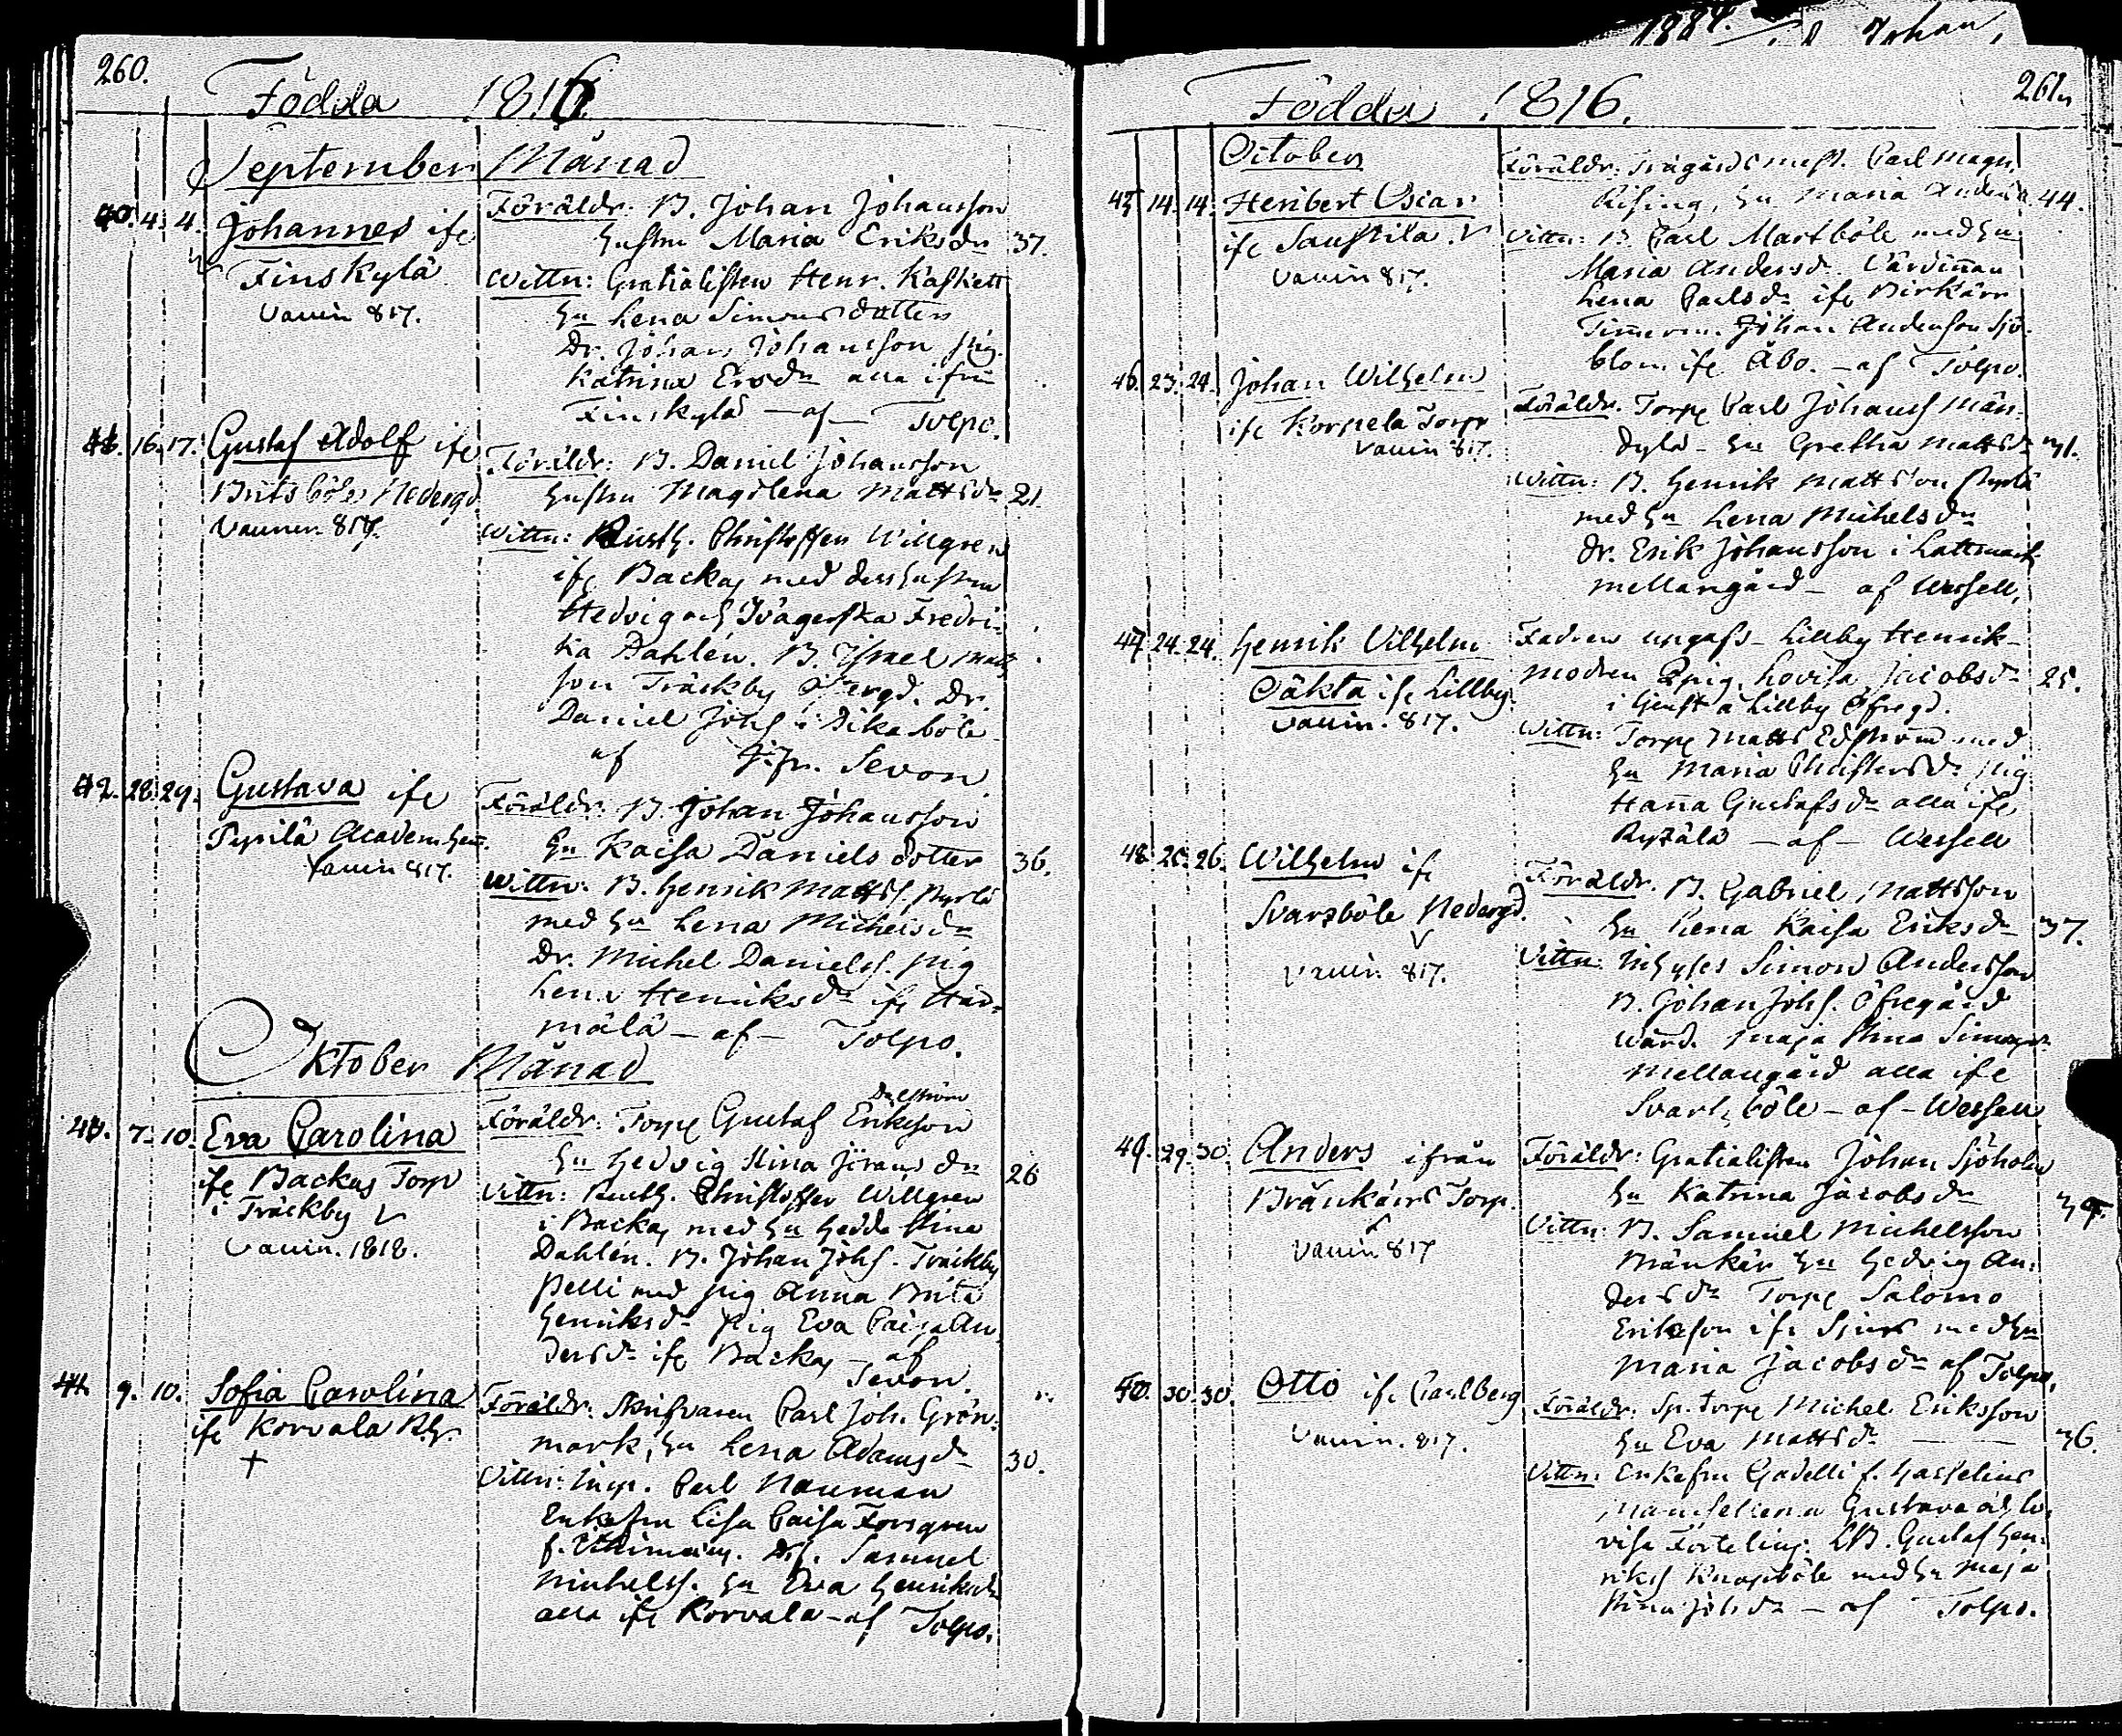 260.
Födda 1816.
September Månad
40. 4. 4. Johannes ifr
Finskylä
Vaccin 817.
Föräldr: B. Johan Johansson
hustru Maria Eriksdr 37.
Wittn: Gratialisten Henr. Kaskett
hu Lena Simonsdotter
Dr. Johan Johansson pig.
Katrina Ersdr alla ifrån
Finskylä – af – Tolpo.
16. 17. Gustaf Adolf ifr
Britsböle Nedergd
Vaccin. 817.
Föräldr: B. Daniel Johansson
hustru Magdlena Mattsdr 21.
Wittn: Rusth. Christoffer Willgren
ifr Backas med dess hustru
Hedvig och Svägerska Fredri-
ka Dahlén. B. Israel Matts
son Träskby Öfvergd. Dr.
Daniel Johs i Dikaböle
af Sevon.
42. 28. 29. Gustava ifr
Pyrilä Academ hem.
Vaccin 817.
Föräldr: B. Johan Johansson
hu Kaisa Daniels dotter 36.
Wittn: B. Henrik Mattss. Pyrlä
med hu Lena Michelsdr
Dr. Michel Danielss. pig
Lena Henriksdr ifr Här-
mälä – af – Tolpo.
Oktober Månad
7. 10. Eva Carolina
ifr Backas Torp
i Träskby
Vaccin. 1818.
Dalström
Föräldr: Torpr Gustaf Eriksson
hu Hedvig Stina Jöransdr 26
Vittn: Rusth. Christoffer Willgren
i Backas med hu Hedda Stina
Dahlén. B. Johan Johs. Träskby
Pelli med pig Anna Brita
Henriksdr pig Eva Caisa An-
dersdr ifr Backas – af
Sevon.
44. 9. 10. Sofia Carolina
ifr Korvala
+
Föräldr: Skrifvaren Carl Joh. Grön-
mark, hu Lena Adamsdr 30.
Vittn: Insp. Carl Nauman
Enkefru Lisa Caisa Forsgren
Samuel
Michelss. hu Eva Henriksdr
alla ifr Korvala – af Tolpo.
1884. Johan
261.
Födda 1816.
October
45 14. 14. Heribert Osian
ifr Saustila.
Vaccin 817.
Föräldr: Trägårdsmäst. Carl Magn.
Rising, hu Maria Andersdr. 44.
Vittn: B. Carl Martböle med hu
Maria Andersdr. Värdinnan
Lena Carlsdr ifr Birkärr
Timmerm. Johan Andersson Sjö-
blom ifr Åbo. – af Tolpo.
46. 23. 24. Johan Wilhelm
ifr Korpela Torp
Vaccin 817.
Föräldr. Torpr Carl Johanss Män-
dylä hu Gretha Mattsdr 31.
Wittn: B. Henrik Mattsson Pyrlä
med hu Lena Michelsdr
Dr. Erik Johansson i Lattmark
mellangård – af Wessell,
47. 24. 24. Henrik Vilhelm
Oäkta ifr Lillby.
Vaccin. 817.
Fadren ungafs – Lillby Henrik –
modren pig. Lovisa Jacobsdr 25.
i tjenst å Lillby Öfregd.
Wittn: Torpr Matts Edström med
hu Maria Christersdr pig
Hanna Gustafsdr alla ifr
– af – Wessell
48. 25. 26. Wilhelm ifr
Svartböle Nedergd.
Vaccin 817.
Föräldr. B. Gabriel Mattsson
hu Lena Kaisa Eriksdr 37.
Vittn: Inhyses Simon Andersson
B. Johan Johs. Öfregård
Värd. Maja Stina Simonsdr
Mellangård alla ifr
Svartböle – af – Wessell
49. 29. 30. Anders ifrån
Bränkärs Torp.
Vaccin 817
Föräldr: Gratialisten Johan Sjöholm
hu Katrina Jacobsdr 39.
Vittn: B. Samuel Michelsson
Bränkär hu Hedvig An-
dersdr Torpr Salomo
Eriksson ifr med hu
Maria Jacobsdr af Tolpo.
50. 30. 30. Otto ifr Carlberg
Vaccin. 817.
Föräldr: Sp. Torpr Michel Eriksson
hu Eva Mattsdr 36.
Vittn: Enkefru Gadelli f. Hasselius
Mamsellerna Gustava och Lo-
visa Förteling. LB. Gustaf Hen-
rikss Knapböle med hu Maja
Stina Johsdr – af Tolpo.